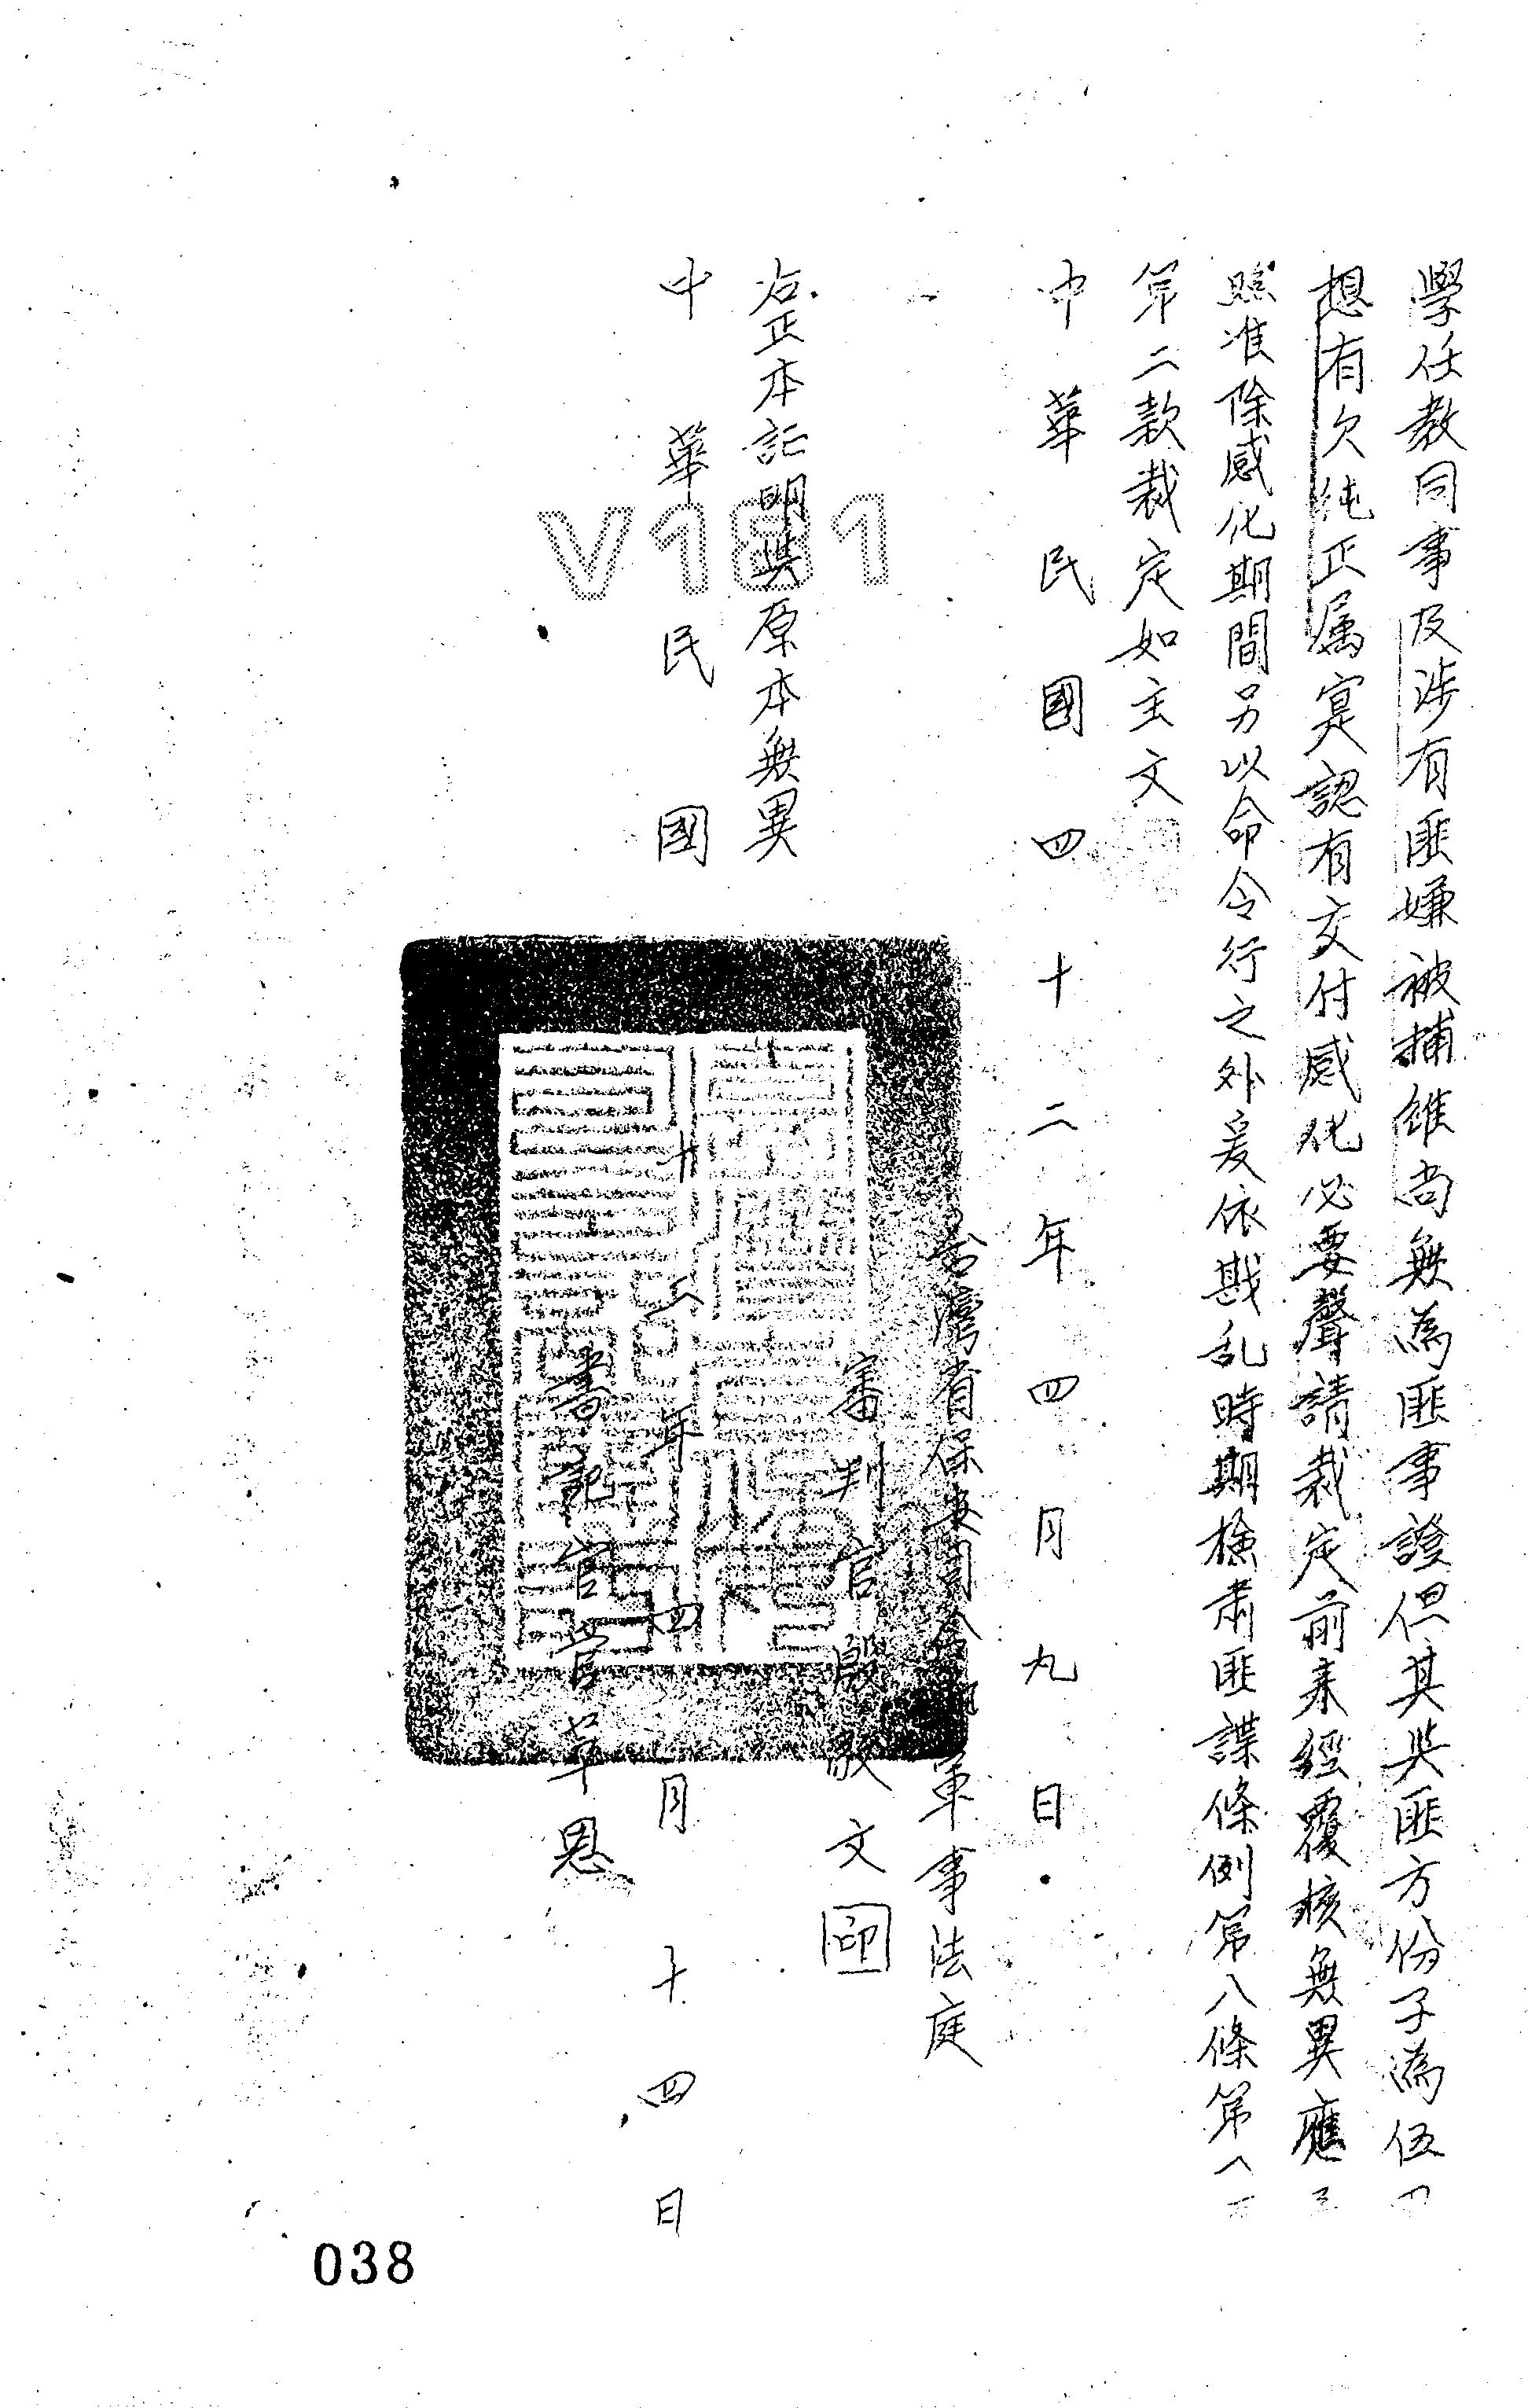 學任教同事及涉有匪嫌被捕雖尚無為匪事證但其與匪方份子為伍
想有欠純正屬寔認有交付感化必要聲請裁定前来經覆核無異應予
照准除感化期間另以命令行之外爰依戡乱時期檢肅匪諜條例第八條第一項
第二款裁定如主文
中華民國四十二年四月九日
台灣省保安司令部軍事法庭
審判官殷敬文印
右正本証明與原本無異
中華民國四十二年四月十四日
書記官 草恩
V181
038